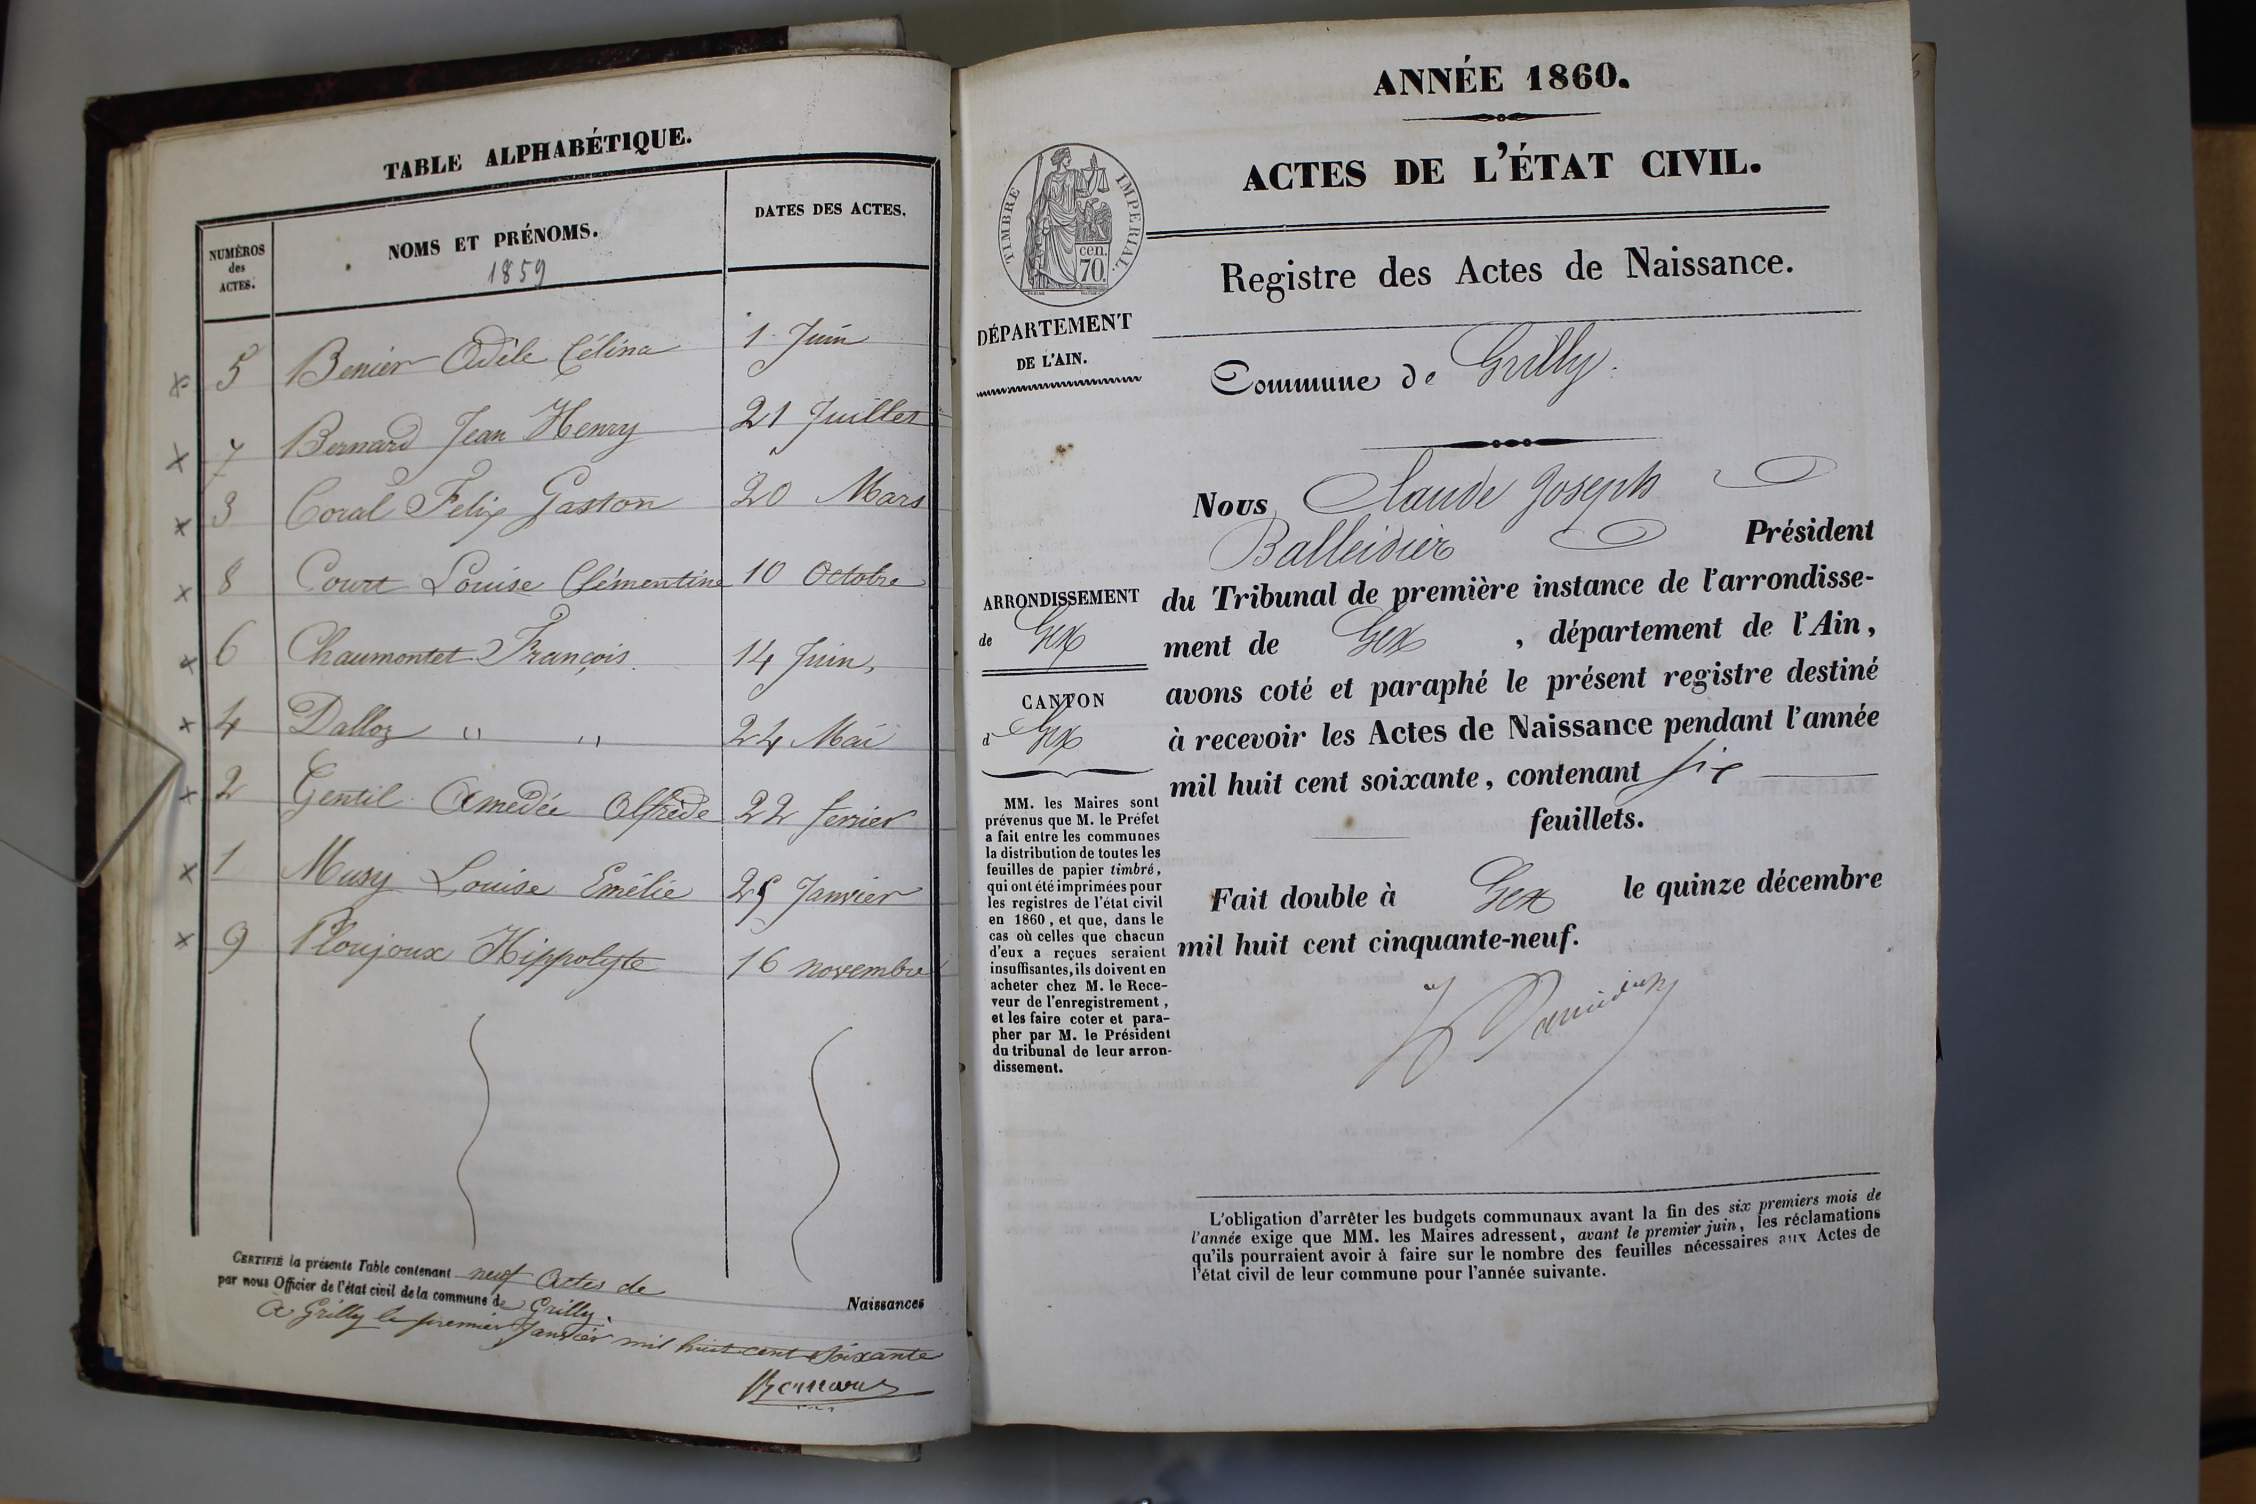 TABLE ALPHABÉTIQUE.
NUMÉROS des ACTES.
NOMS ET PRÉNOMS.
1859
DATES DES ACTES.
5 Benier Adèle Célina 1 Juin
7 Bernard Jean Henry 21 Juillet
3 Coral Felix Gaston 20 Mars
8 Court Louise Clémentine 10 Octobre
6 Chaumontet François 14 Juin
4 Dalloz " " 24 Mai
2 Gentil Amédée Alfrède 22 fevrier
1 Musy Louise Emélie 25 Janvier
9 Ploujoux Hippolyte 16 novembre
CERTIFIÉ la présente Table contenant neuf Actes de
Naissances
par nous Officier de l'état civil de la commune de Grilly.
A Grilly le premier Janvier mil huit cent soixante
Bernard
ANNÉE 1860.
ACTES DE L'ÉTAT CIVIL.
TIMBRE IMPERIAL.
cen.
70.
Registre des Actes de Naissance.
DÉPARTEMENT
DE L'AIN.
Commune de Grilly.
ARRONDISSEMENT
de Gex
CANTON
d Gex
MM. les Maires sont
prévenus que M. le Préfet
a fait entre les communes
la distribution de toutes les
feuilles de papier timbré,
qui ont été imprimées pour
les registres de l'état civil
en 1860, et que, dans le
cas où celles que chacun
d'eux a reçues seraient
insuffisantes, ils doivent en
acheter chez M. le Rece-
veur de l'enregistrement,
et les faire coter et para-
pher par M. le Président
du tribunal de leur arron-
dissement.
Nous Claude Joseph
Balleidier Président
du Tribunal de première instance de l'arrondisse-
ment de Gex, département de l'Ain,
avons coté et paraphé le présent registre destiné
à recevoir les Actes de Naissance pendant l'année
mil huit cent soixante, contenant six
feuillets.
Fait double à Gex le quinze décembre
mil huit cent cinquante-neuf.
L'obligation d'arrêter les budgets communaux avant la fin des six premiers mois de
l'année exige que MM. les Maires adressent, avant le premier juin, les réclamations
qu'ils pourraient avoir à faire sur le nombre des feuilles nécessaires aux Actes de
l'état civil de leur commune pour l'année suivante.